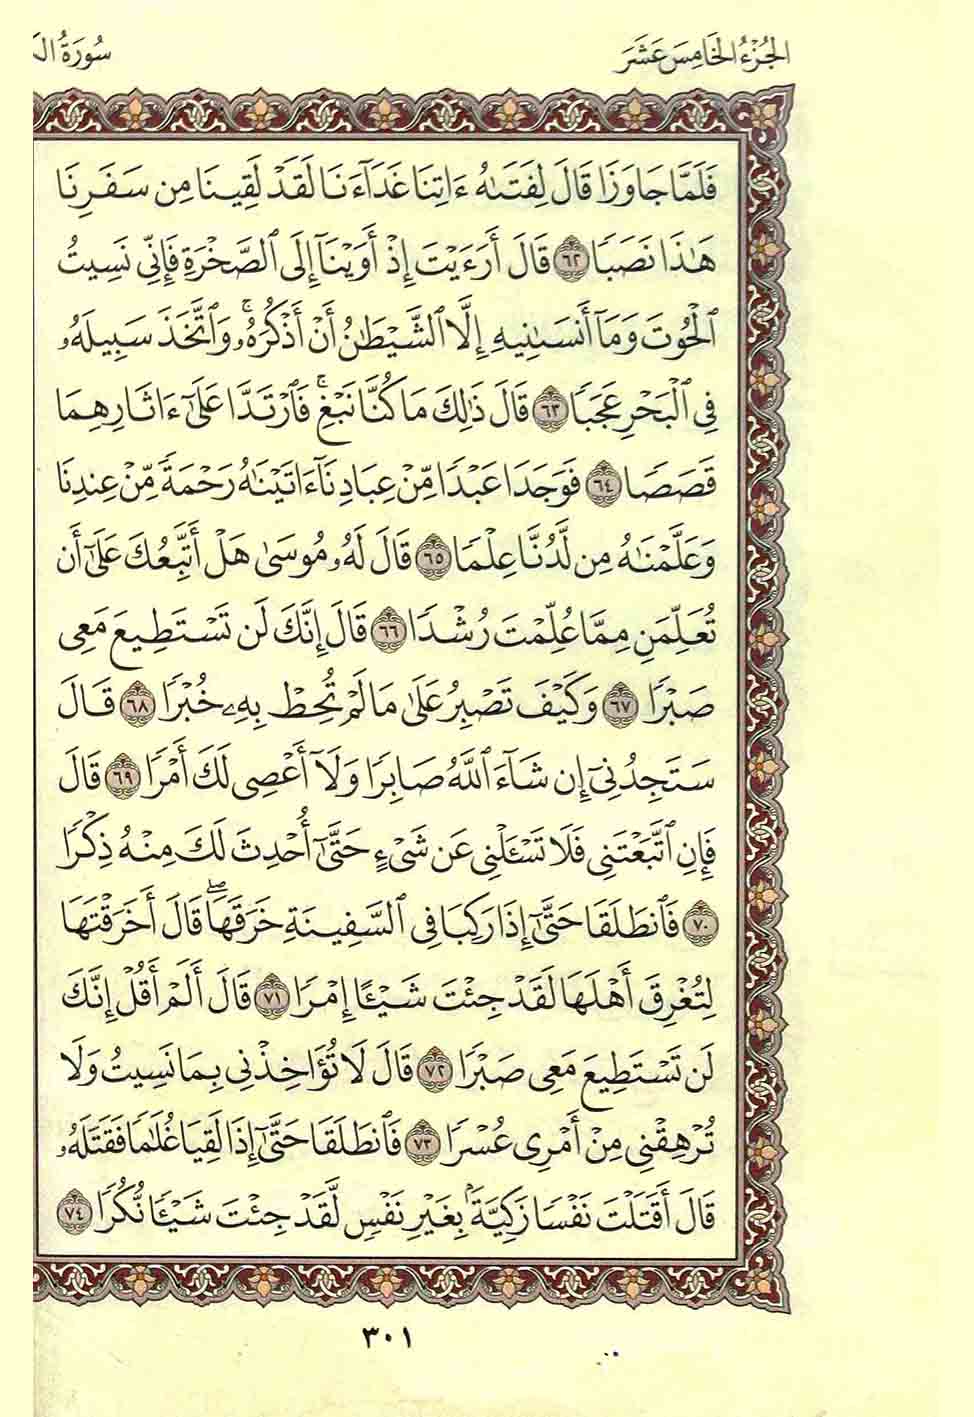 الجُزْءُ الخَامِسَ عَشَرَ
سُورَةُ
فَلَمَّا جَاوَزَا قَالَ لِفَتَىٰهُ ءَاتِنَا غَدَآءَنَا لَقَدْ لَقِينَا مِن سَفَرِنَا
هَٰذَا نَصَبًا ٦٢ قَالَ أَرَءَيْتَ إِذْ أَوَيْنَآ إِلَى ٱلصَّخْرَةِ فَإِنِّي نَسِيتُ
ٱلْحُوتَ وَمَآ أَنسَىٰنِيهِ إِلَّا ٱلشَّيْطَٰنُ أَنْ أَذْكُرَهُۥۚ وَٱتَّخَذَ سَبِيلَهُۥ
فِي ٱلْبَحْرِ عَجَبًا ٦٣ قَالَ ذَٰلِكَ مَا كُنَّا نَبْغِۚ فَٱرْتَدَّا عَلَىٰٓ ءَاثَارِهِمَا
قَصَصًا ٦٤ فَوَجَدَا عَبْدًا مِّنْ عِبَادِنَآ ءَاتَيْنَٰهُ رَحْمَةً مِّنْ عِندِنَا
وَعَلَّمْنَٰهُ مِن لَّدُنَّا عِلْمًا ٦٥ قَالَ لَهُۥ مُوسَىٰ هَلْ أَتَّبِعُكَ عَلَىٰٓ أَن
تُعَلِّمَنِ مِمَّا عُلِّمْتَ رُشْدًا ٦٦ قَالَ إِنَّكَ لَن تَسْتَطِيعَ مَعِيَ
صَبْرًا ٦٧ وَكَيْفَ تَصْبِرُ عَلَىٰ مَا لَمْ تُحِطْ بِهِۦ خُبْرًا ٦٨ قَالَ
سَتَجِدُنِيٓ إِن شَآءَ ٱللَّهُ صَابِرًا وَلَآ أَعْصِي لَكَ أَمْرًا ٦٩ قَالَ
فَإِنِ ٱتَّبَعْتَنِي فَلَا تَسْـَٔلْنِي عَن شَيْءٍ حَتَّىٰٓ أُحْدِثَ لَكَ مِنْهُ ذِكْرًا
٧٠ فَٱنطَلَقَا حَتَّىٰٓ إِذَا رَكِبَا فِي ٱلسَّفِينَةِ خَرَقَهَاۖ قَالَ أَخَرَقْتَهَا
لِتُغْرِقَ أَهْلَهَا لَقَدْ جِئْتَ شَيْـًٔا إِمْرًا ٧١ قَالَ أَلَمْ أَقُلْ إِنَّكَ
لَن تَسْتَطِيعَ مَعِيَ صَبْرًا ٧٢ قَالَ لَا تُؤَاخِذْنِي بِمَا نَسِيتُ وَلَا
تُرْهِقْنِي مِنْ أَمْرِي عُسْرًا ٧٣ فَٱنطَلَقَا حَتَّىٰٓ إِذَا لَقِيَا غُلَٰمًا فَقَتَلَهُۥ
قَالَ أَقَتَلْتَ نَفْسًا زَكِيَّةًۢ بِغَيْرِ نَفْسٍ لَّقَدْ جِئْتَ شَيْـًٔا نُّكْرًا ٧٤
٣٠١